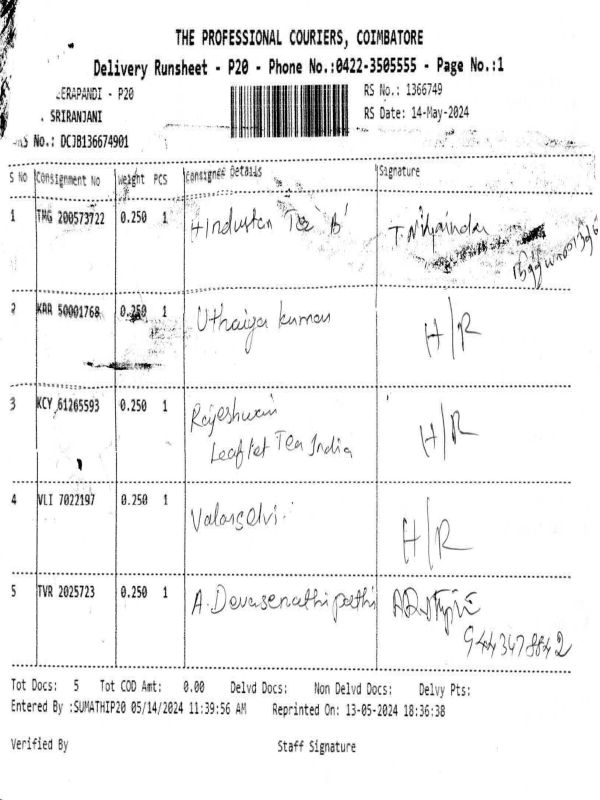 THE PROFESSIONAL COURIERS, COIMBATORE
Delivery Runsheet - P20 - Phone No.:0422-3505555 - Page No.:1
ERAPANDI - P20
RS No.: 1366749
SRIRANJANI
RS Date: 14-May-2024
No.: DCJB136674901
S No Consignment No Weight PCS Consignee Details Signature
1 TMG 200573722 0.250 1 Hindustan Tea 'B' T. Nithyaindar
நித்யானந்தி
2 KRR 50001768 0.250 1 Uthaiya kumar H/R
3 KCY 61265593 0.250 1 Rajeshwari H/R
Leaflet Tea India
4 VLI 7022197 0.250 1 Valarselvi. H/R
5 TVR 2025723 0.250 1 A. Devasenathipathi
9443478842
Tot Docs: 5 Tot COD Amt: 0.00 Delvd Docs: Non Delvd Docs: Delvy Pts:
Entered By :SUMATHIP20 05/14/2024 11:39:56 AM Reprinted On: 13-05-2024 18:36:38
Verified By Staff Signature